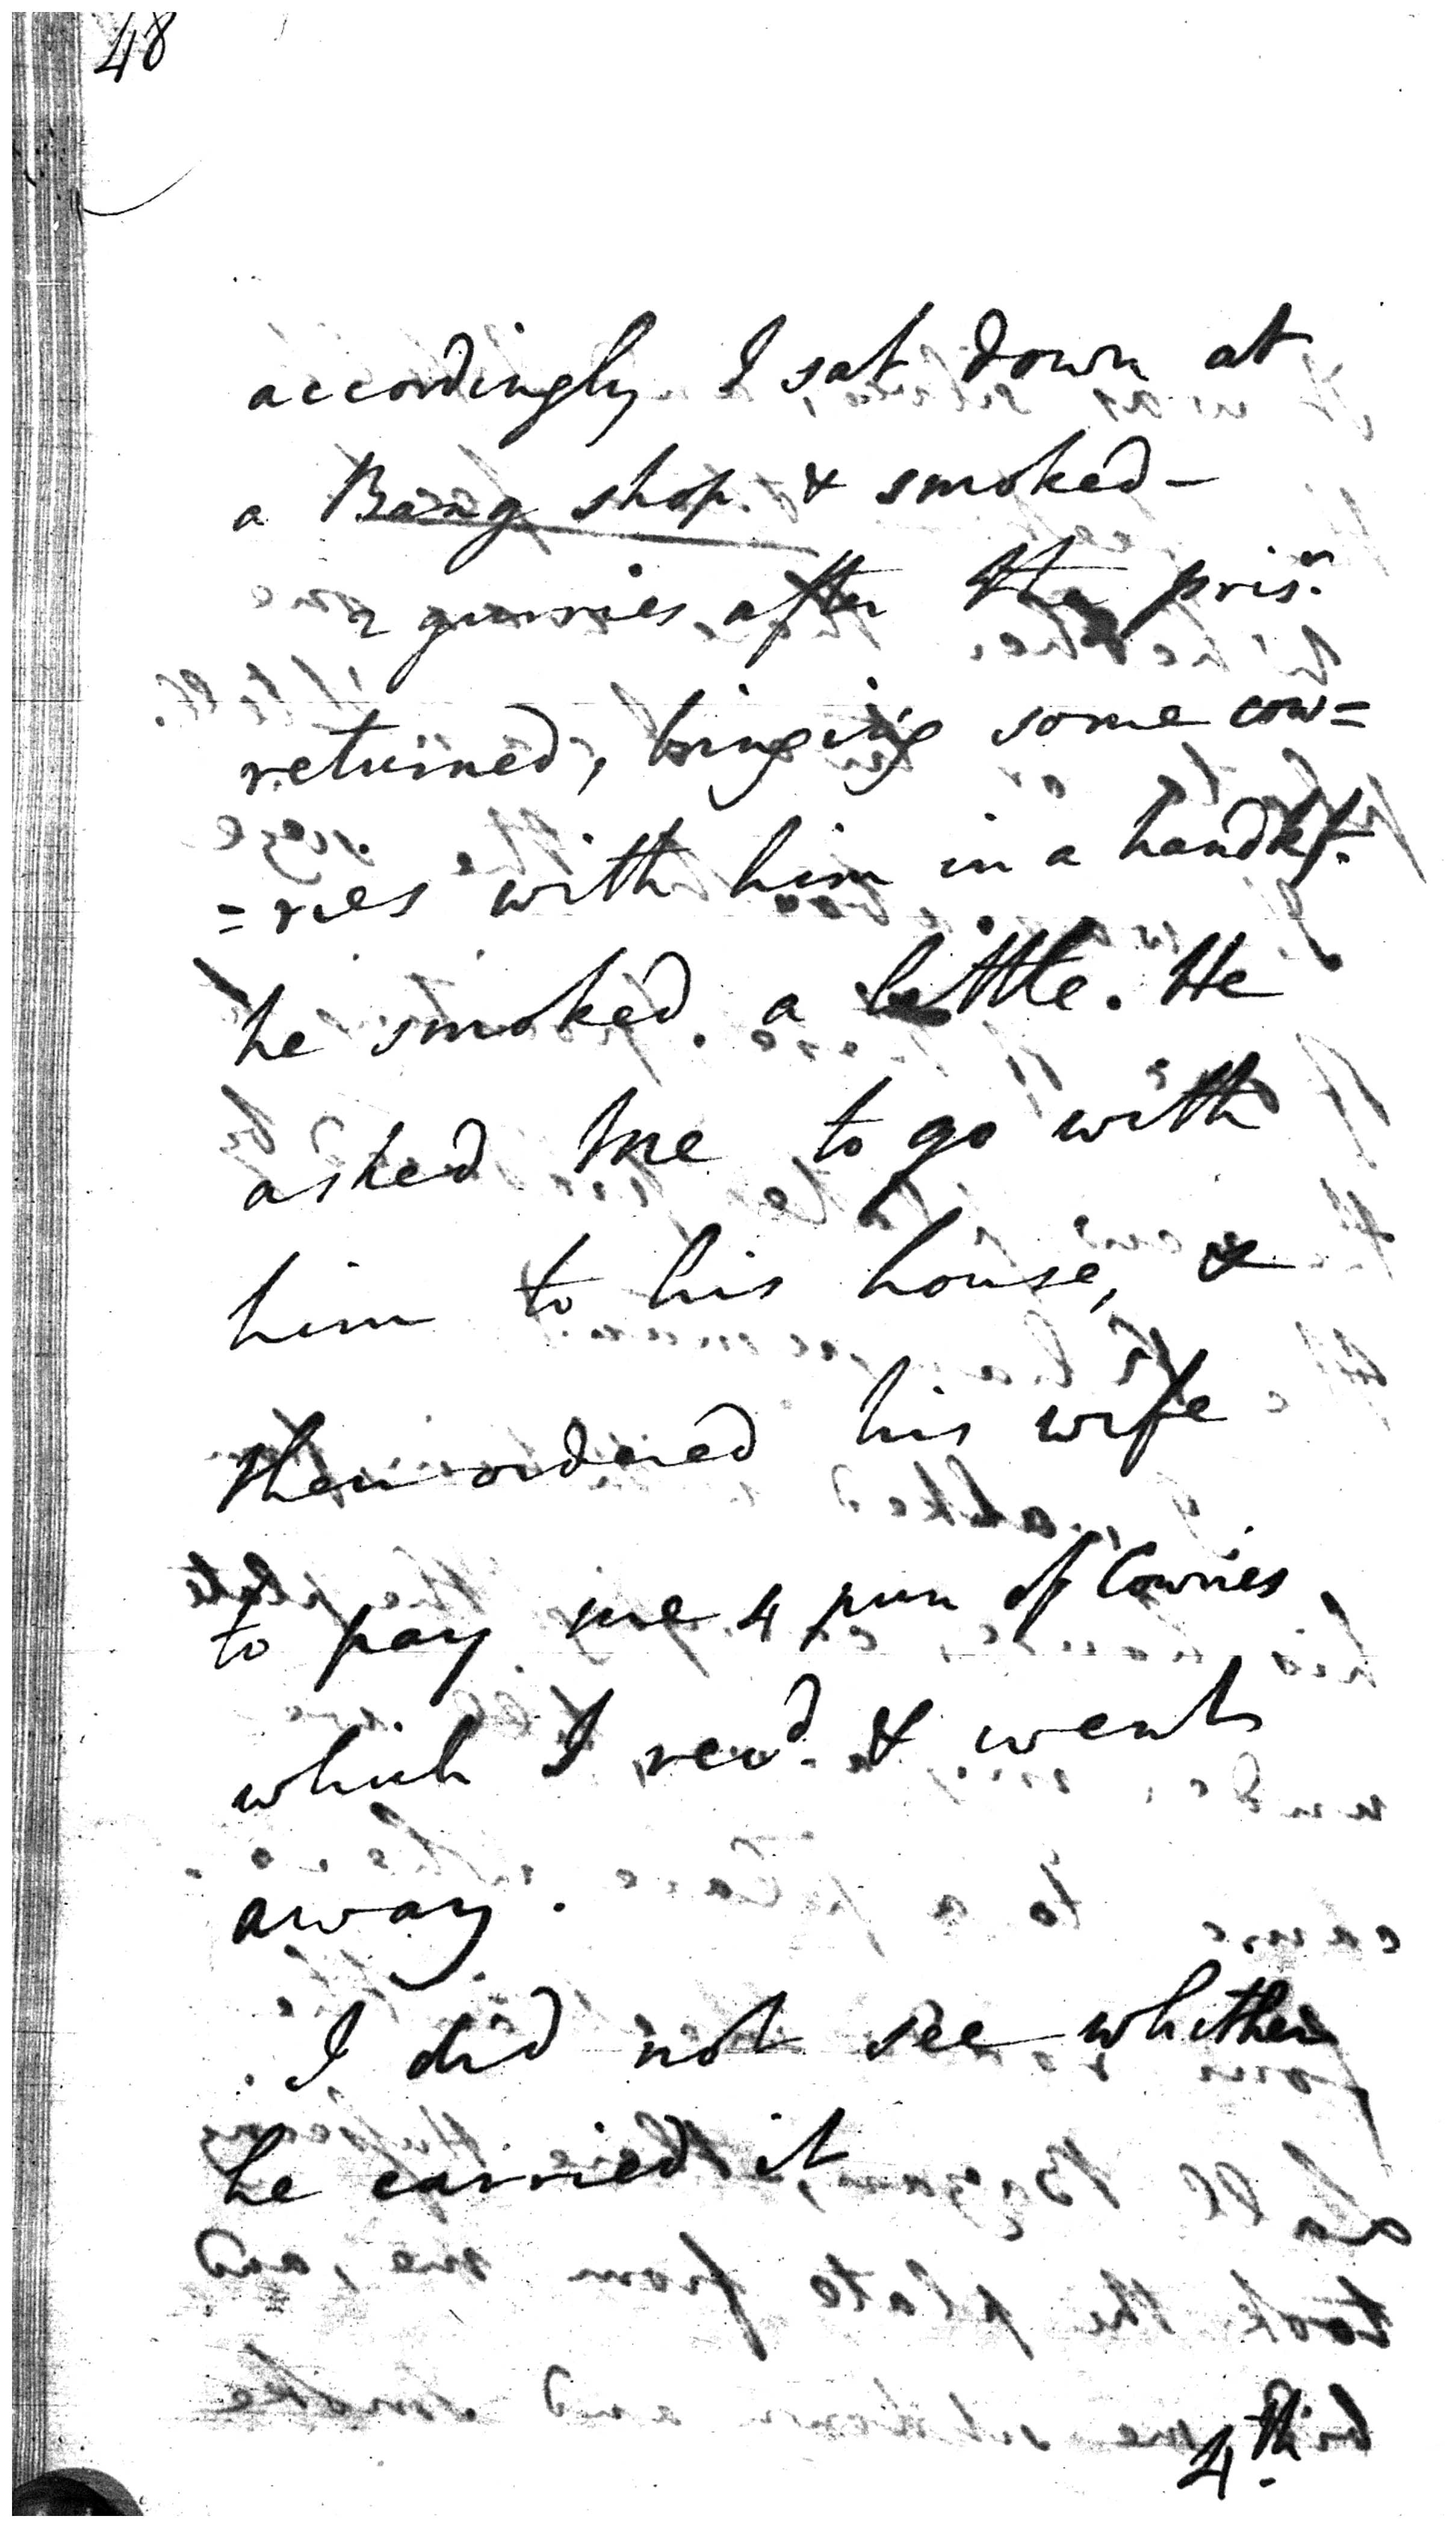 48
accordingly I sat down at
a Bang shop & smoked –
2 gurries after the prisr.
returned, bringing some cow=
=ries with him in a handkf.
he smoked a little. He
asked me to go with
him to his house, &
then ordered his wife
to pay me 4 pun of Cowries
which I recd. & went
away.
I did not see whither
he carried it
4th.